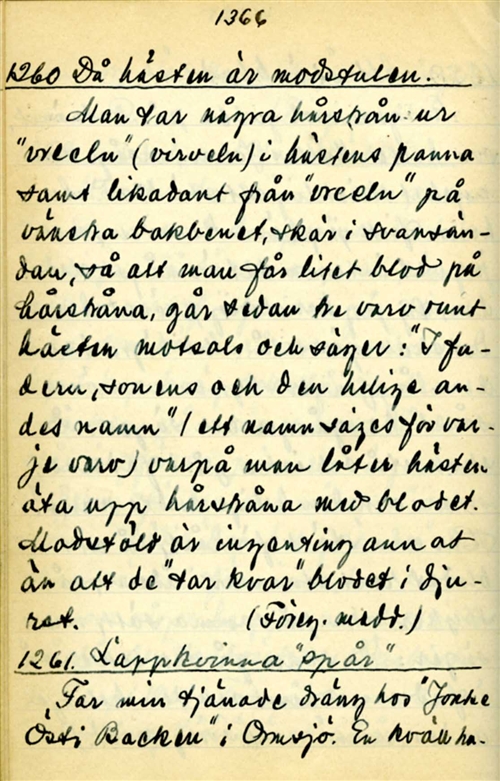 1366
1260 Då hästen är modstulen.
Man tar några hårstrån ur
"vreeln" (virveln) i hästens panna
samt likadant från "vreeln" på
vänstra bakbenet, skär i svansän-
dan, så att man får litet blod på
hårstråna, går sedan tre varv runt
hästen motsols och säger: "I fa-
dern, sonens och den helige an-
des namn" (ett namn säges för var-
je varv) varpå man låter hästen
äta upp hårstråna med blodet.
Modstöld är ingenting annat
än att de "tar kvar" blodet i dju-
ret. (Föreg. medd.)
1261. Lappkvinna "spår"
Far min tjänade dräng hos "Jonke
Östi Backen" i Ormsjö. En kväll ha-